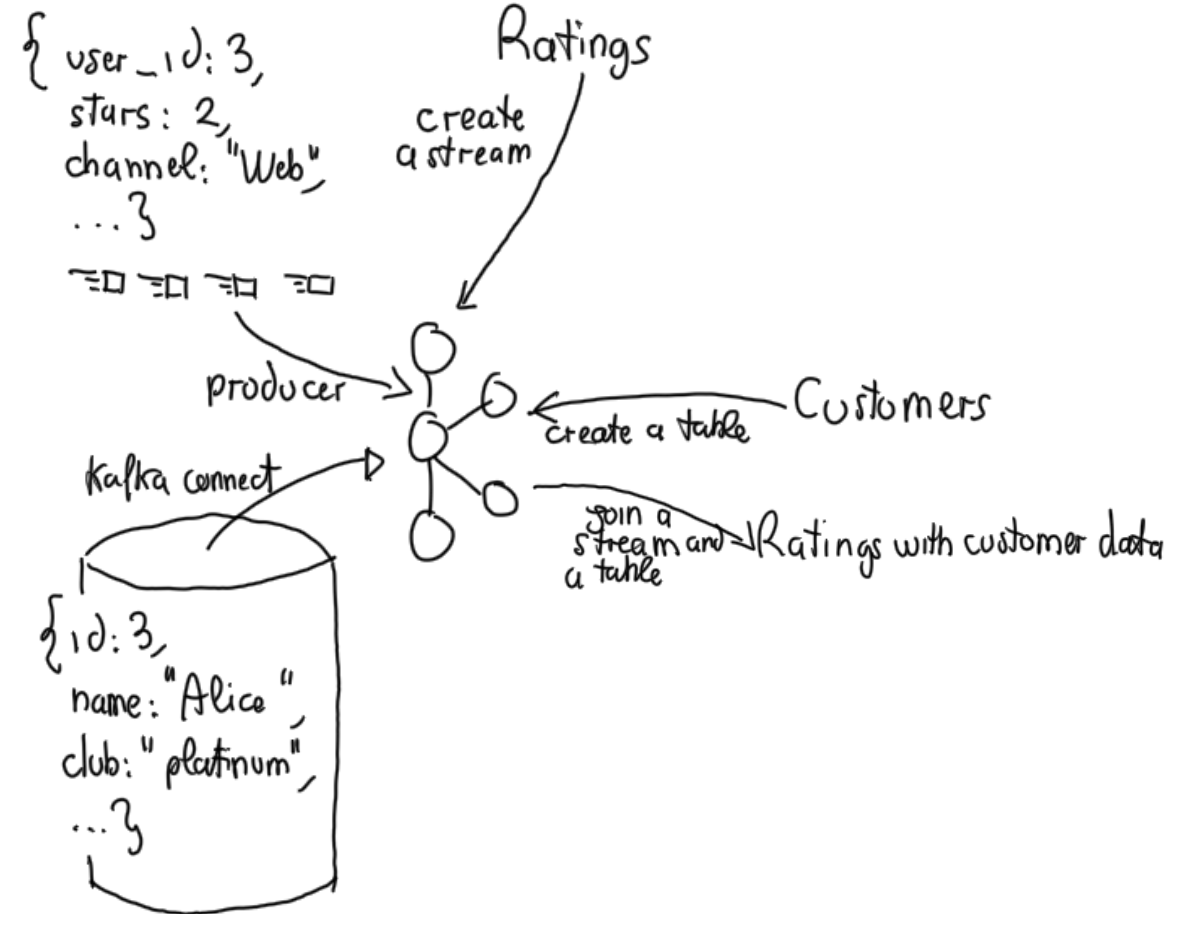 { user_id: 3,
stars: 2,
channel: "Web",
...}
Ratings
create
a stream
producer
Customers
create a table
Kafka connect
join a
stream and
a table
Ratings with customer data
{id: 3,
name: "Alice",
club: "platinum",
...}